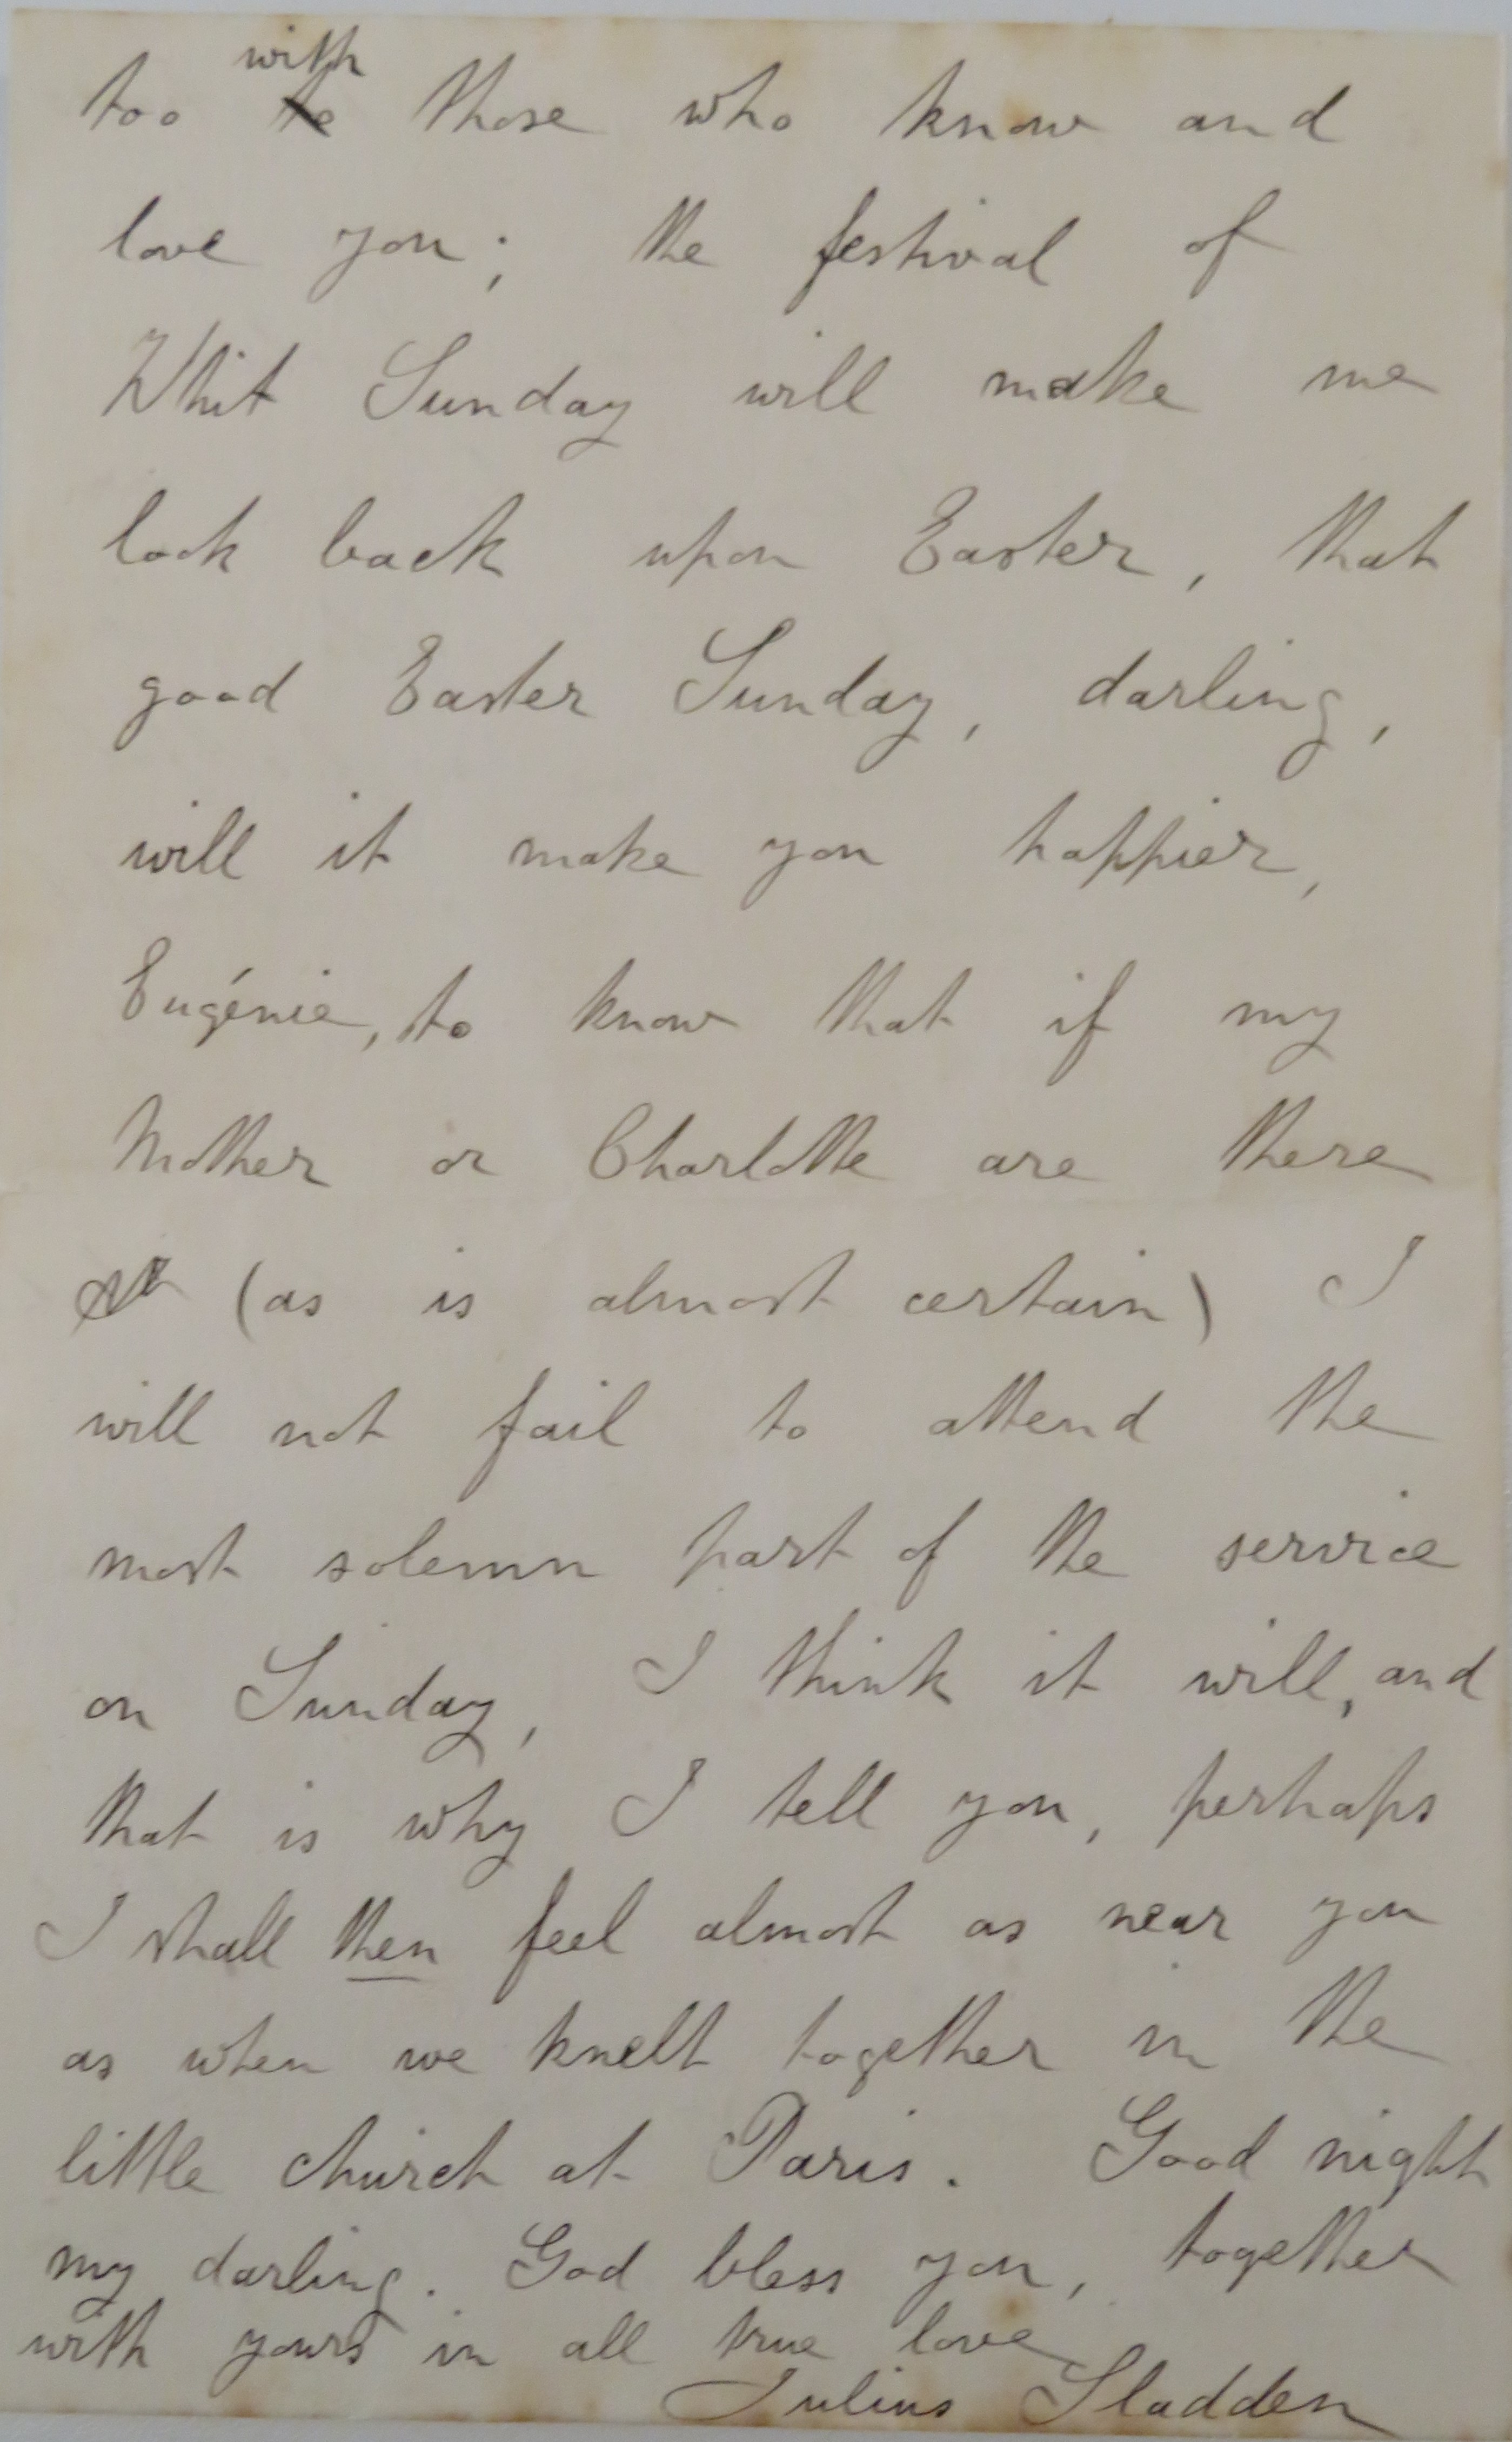 too with those who know and
love you; the festival of
Whit Sunday will make me
look back upon Easter, that
good Easter Sunday, darling,
will it make you happier,
Eugénie, to know that if my
Mother or Charlotte are there
(as is almost certain) I
will not fail to attend the
most solemn part of the service
on Sunday, I think it will, and
that is why I tell you, perhaps
I shall then feel almost as near you
as when we knelt together in the
little church at Paris. Good night
my darling. God bless you, together
with yours in all true love
Julius Sladden